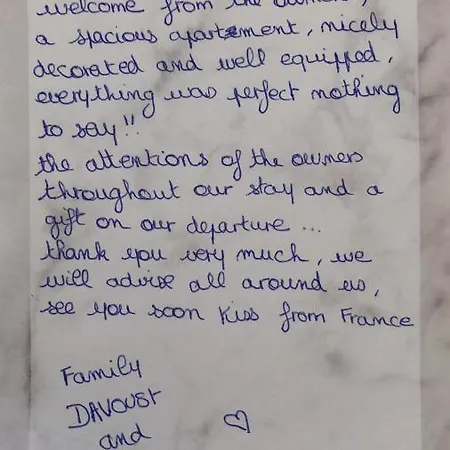 welcome from the owners,
a spacious apartment, nicely
decorated and well equipped,
everything was perfect nothing
to say!!
the attentions of the owners
throughout our stay and a
gift on our departure ...
thank you very much, we
will advise all around us,
see you soon kiss from France
Family
DAVOUST
and